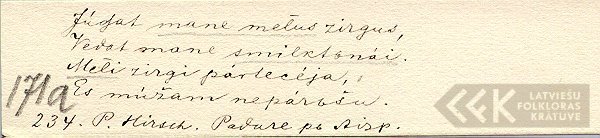 Jūdzat mane melus zirgus,
Vedat mane smilktenāi.
Meli zirgi pārtecēja,
Es mūžam nepārošu.
171a
234. P. Hirsch. Padure pr Aizp.
LATVIEŠU
FOLKLORAS
KRĀTUVE